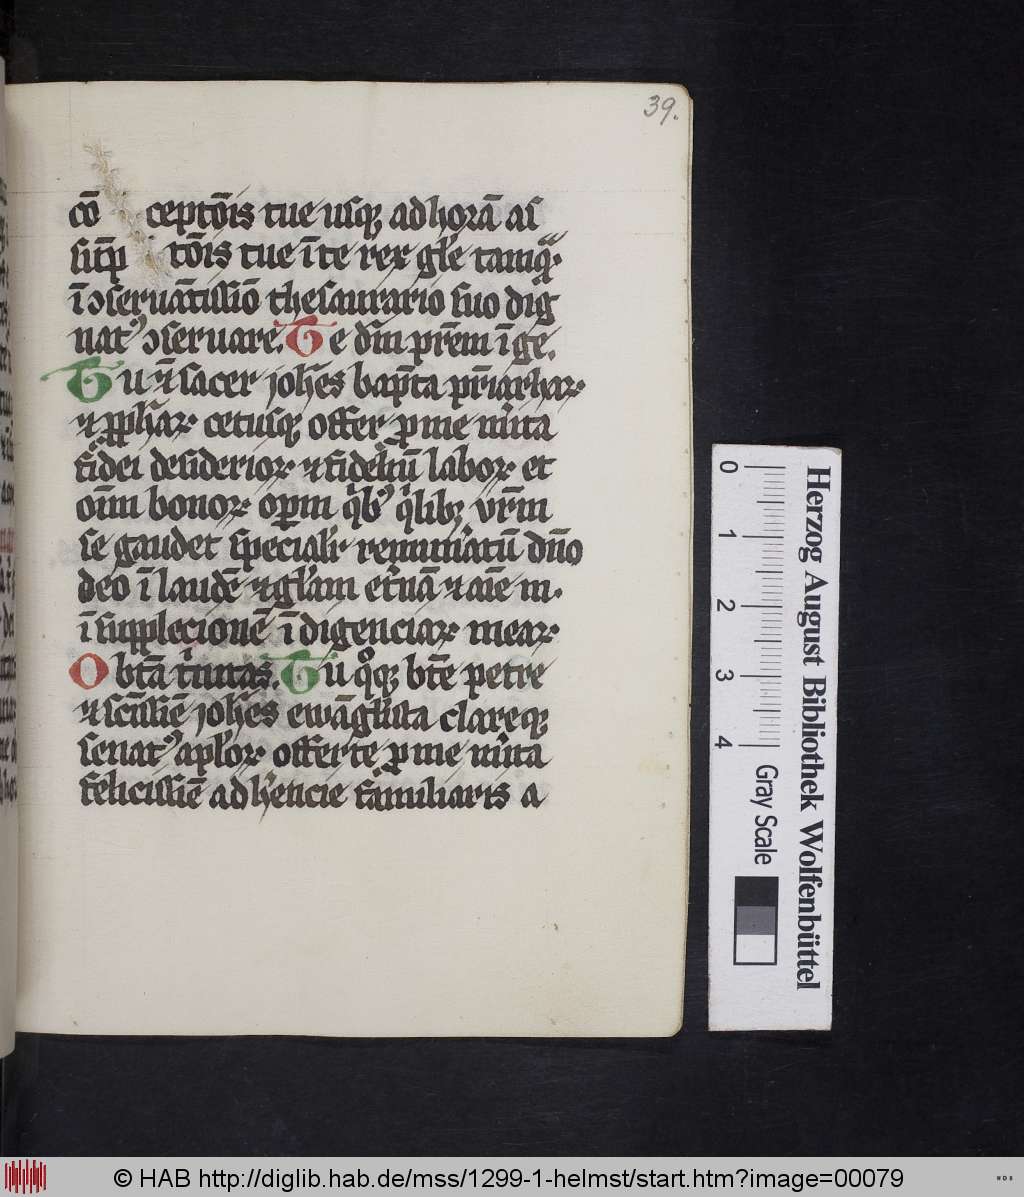 39.
cō ceptōis tue usq̄ ad horā aſ
sūp tōis tue ī te rex gl̄e tamq̄ꝫ
ī ↄseruātissīo thesaurario suo dig
nat᷒ ↄseruare. Te dm̄ pr̄em īgē.
Tu ⁊ sacer joh̄es bapt̄a pr̄iarhaꝝ
⁊ pp̄haꝝ cetusqꝫ offer ꝓ me
fidei desiderioꝝ ⁊ fideliū laboꝝ et
om̄ bonoꝝ oꝑm qͥbꝰ qͥlibꝫ vr̄m
se gaudet sp̄ecialiꝰ dn̄o
deo ī laudē ⁊ gl̄am et̄nā ⁊ aīe m.
ī supplecionē īdigenciaꝝ meaꝝ
O bt̄a t̄nitas. Tu qͦqꝫ bt̄e petre
⁊ sc̄issīe joh̄es ewāgl̄ista clareqꝫ
senat᷒ apl̄oꝝ offerte ꝓ me
felicissīe ad h̄encie familiaris a
0 1 2 3 4
Gray Scale
Herzog August Bibliothek Wolfenbüttel
© HAB http://diglib.hab.de/mss/1299-1-helmst/start.htm?image=00079